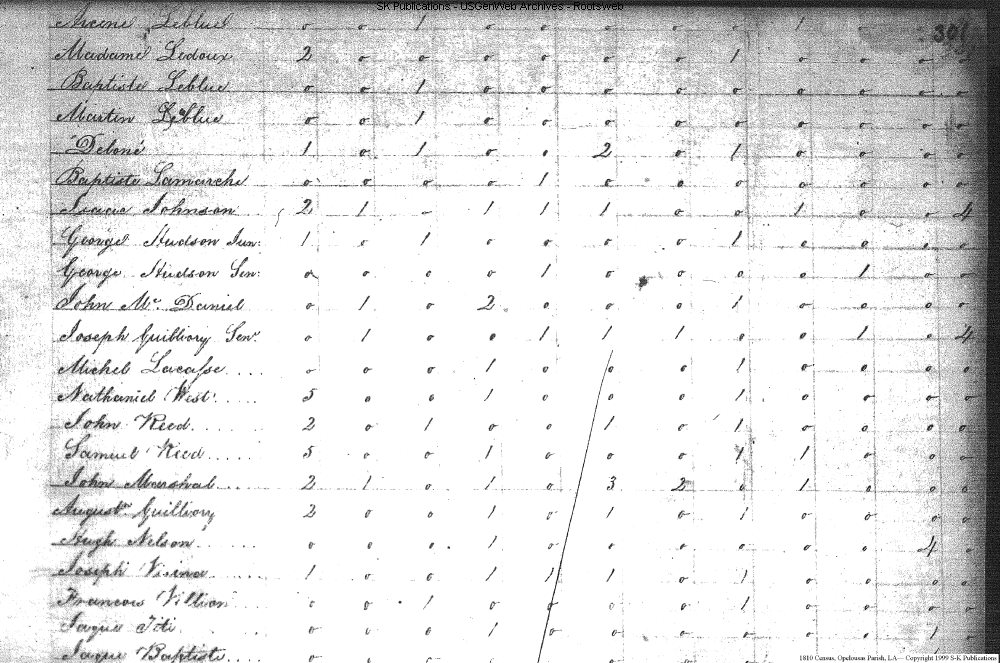 SK Publications - USGenWeb Archives - Rootsweb
301
Arcene Leblue o o 1 o o o o o 1 o o
Madame Ledoux 2 o o o o o o 1 o o o o
Baptiste Leblue o o 1 o o o o o o o o o
Martin Leblue o o 1 o o o o o o o o o
Deloné 1 o 1 o o 2 o 1 o o o o
Baptiste Lamarche o o o o 1 o o o o o o o
Isaac Johnson 2 1 - 1 1 1 o o 1 o o 4
George Hudson Jun: 1 o 1 o o o o 1 o o o o
George Hudson Sen: o o o o 1 o o o o 1 o o
John Mc. Daniel o 1 o 2 o o o 1 o o o o
Joseph Guilliory Senr. o 1 o o 1 1 1 o o 1 o 4
Michel Lacasse.... o o o 1 o o o 1 o o o o
Nathaniel West..... 5 o o 1 o o o 1 o o o o
John Reed....... 2 o 1 o o 1 o 1 o o o o
Samuel Reed..... 5 o o 1 o o o 1 1 o o o
John Marshal... 2 1 o 1 o 3 2 o 1 o o o
August. Guilliory 2 o o 1 o 1 o 1 o o o o
Hugh Nelson..... o o o 1 o o o o o o 4 o
Joseph ...... 1 o o 1 1 1 o 1 o o o o
Francois .... o o 1 o o o o 1 o o o o
Jaque Titi... o o o 1 o o o o o o 1 o
Jaque Baptiste....
1810 Census, Opelousas Parish, LA -- Copyright 1999 S-K Publications